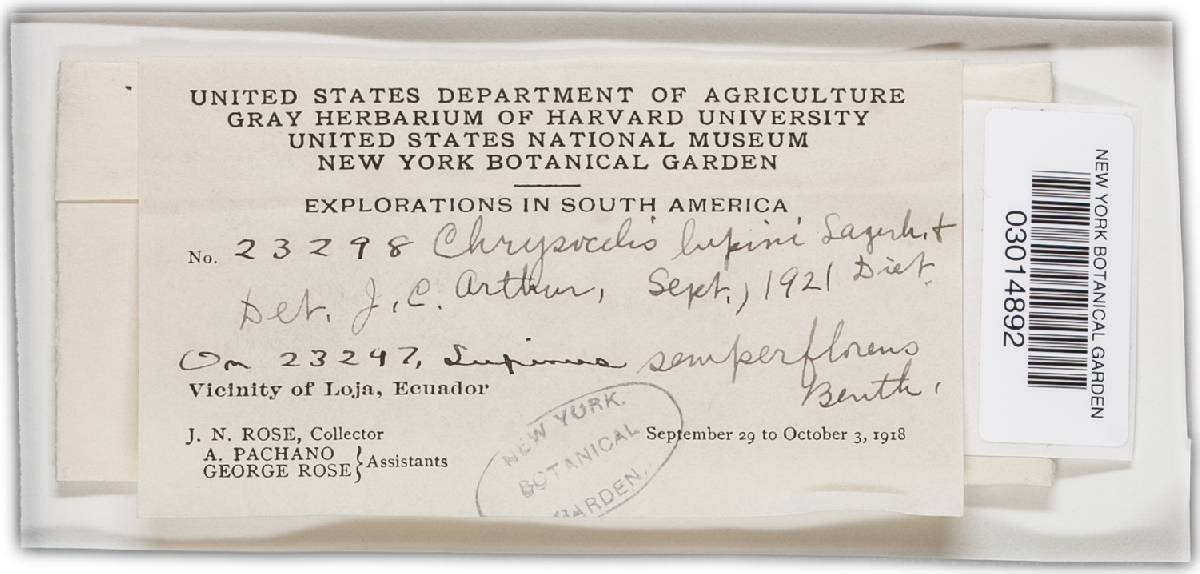 UNITED STATES DEPARTMENT OF AGRICULTURE
GRAY HERBARIUM OF HARVARD UNIVERSITY
UNITED STATES NATIONAL MUSEUM
NEW YORK BOTANICAL GARDEN
EXPLORATIONS IN SOUTH AMERICA
No. 23298 Chrysocelis lupini Lagerh. &
Det. J. C. Arthur, Sept., 1921 Diet.
On 23297, Lupinus semperflorens
Benth.
Vicinity of Loja, Ecuador
J. N. ROSE, Collector
A. PACHANO
GEORGE ROSE } Assistants
September 29 to October 3, 1918
NEW YORK.
BOTANICAL
GARDEN.
NEW YORK BOTANICAL GARDEN
03014892